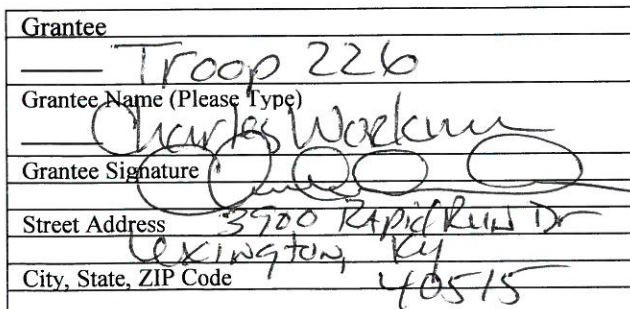 Grantee
Troop 226
Grantee Name (Please Type)
Charles Workman
Grantee Signature
Street Address 3900 Rapid Run Dr
Lexington, Ky
City, State, ZIP Code 40515